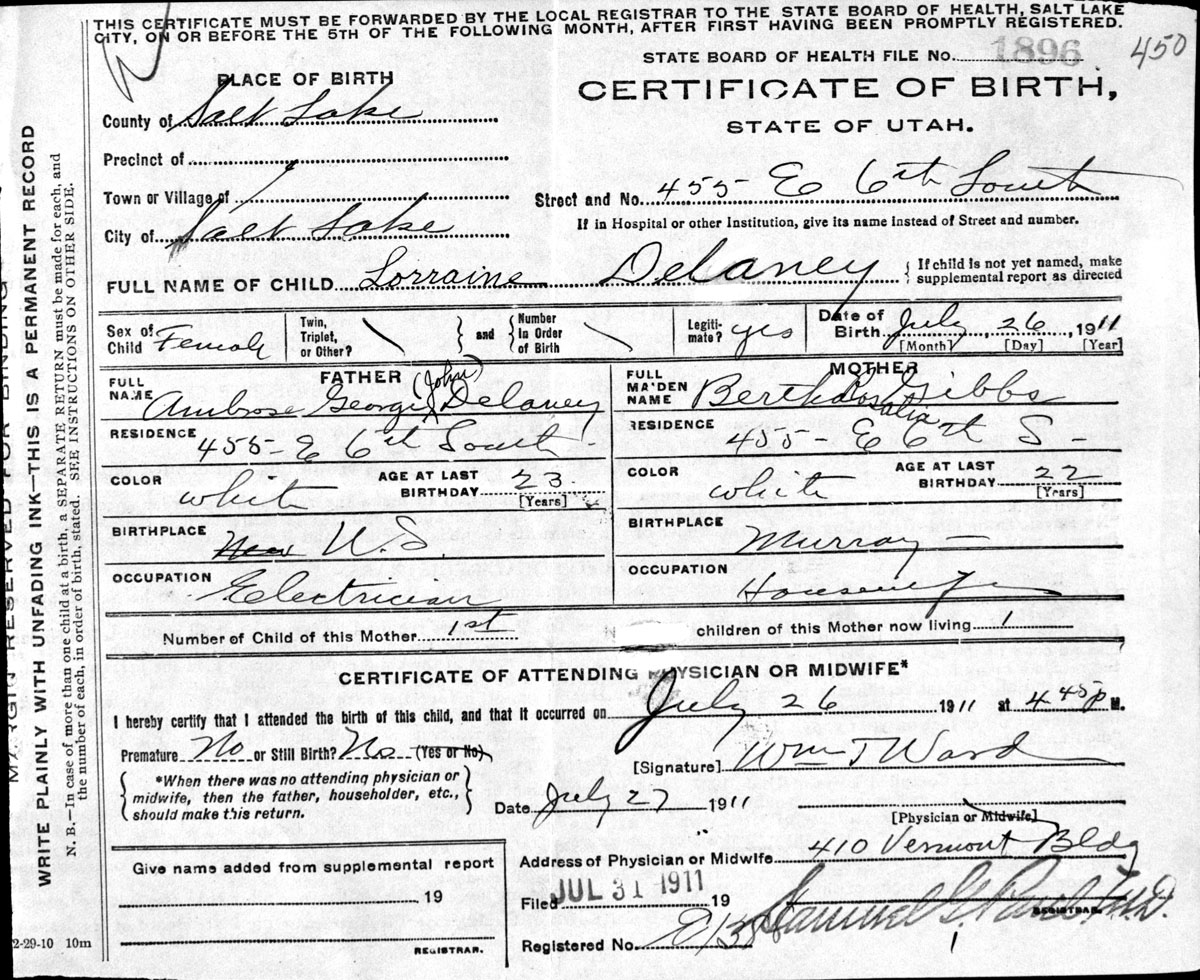 THIS CERTIFICATE MUST BE FORWARDED BY THE LOCAL REGISTRAR TO THE STATE BOARD OF HEALTH, SALT LAKE
CITY, ON OR BEFORE THE 5TH OF THE FOLLOWING MONTH, AFTER FIRST HAVING BEEN PROMPTLY REGISTERED.
STATE BOARD OF HEALTH FILE No. 1896 450
PLACE OF BIRTH
CERTIFICATE OF BIRTH,
STATE OF UTAH.
County of Salt Lake
Precinct of
Town or Village of
Street and No. 455 E 6th South
City of Salt Lake
If in Hospital or other Institution, give its name instead of Street and number.
FULL NAME OF CHILD Lorraine Delaney { If child is not yet named, make supplemental report as directed
Sex of Child Female
Twin, Triplet, or Other? } and { Number In Order of Birth
Legiti- mate? yes
Date of Birth July, 26, 1911
[Month] [Day] [Year]
FATHER
FULL NAME Ambrose George (John) Delaney
RESIDENCE 455 - E 6th South -
COLOR White
AGE AT LAST BIRTHDAY 23
[Years]
BIRTHPLACE U.S.
OCCUPATION Electrician
MOTHER
FULL MAIDEN NAME Bertha Rosalia Gibbs
RESIDENCE 455 - E 6th S -
COLOR White
AGE AT LAST BIRTHDAY 22
[Years]
BIRTHPLACE Murray —
OCCUPATION Housewife
Number of Child of this Mother 1st
children of this Mother now living 1
CERTIFICATE OF ATTENDING PHYSICIAN OR MIDWIFE*
I hereby certify that I attended the birth of this child, and that it occurred on July 26 1911 at 4 45 P M.
Premature No or Still Birth? No (Yes or No)
[Signature] Wm T Ward
{ *When there was no attending physician or
midwife, then the father, householder, etc.,
should make this return. }
Date July 27 1911
[Physician or Midwife]
Address of Physician or Midwife 410 Vermont Bldg
Give name added from supplemental report
19
REGISTRAR.
Filed JUL 31 1911 19
Samuel G. Paul, M.D.
REGISTRAR.
Registered No.
1
2-29-10 10m
MARGIN RESERVED FOR BINDING
WRITE PLAINLY WITH UNFADING INK—THIS IS A PERMANENT RECORD
N. B.—In case of more than one child at a birth, a SEPARATE RETURN must be made for each, and
the number of each, in order of birth, stated. SEE INSTRUCTIONS ON OTHER SIDE.